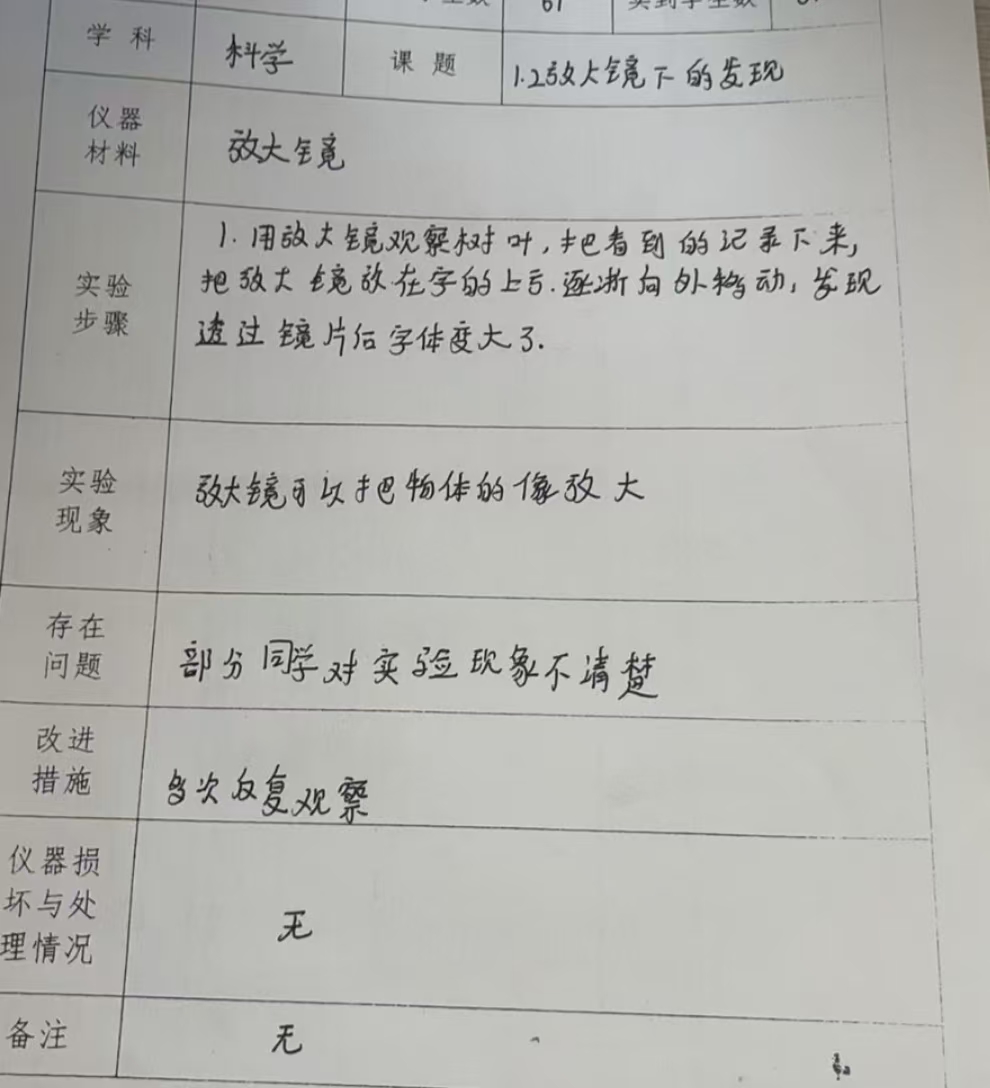 61
学科 科学 课题 1.2放大镜下的发现
仪器
材料
放大镜
实验
步骤
1. 用放大镜观察树叶,把看到的记录下来,
把放大镜放在字的上方.逐渐向外移动,发现
透过镜片后字体变大了.
实验
现象
放大镜可以把物体的像放大
存在
问题
部分同学对实验现象不清楚
改进
措施
多次反复观察
仪器损
坏与处
理情况
无
备注
无